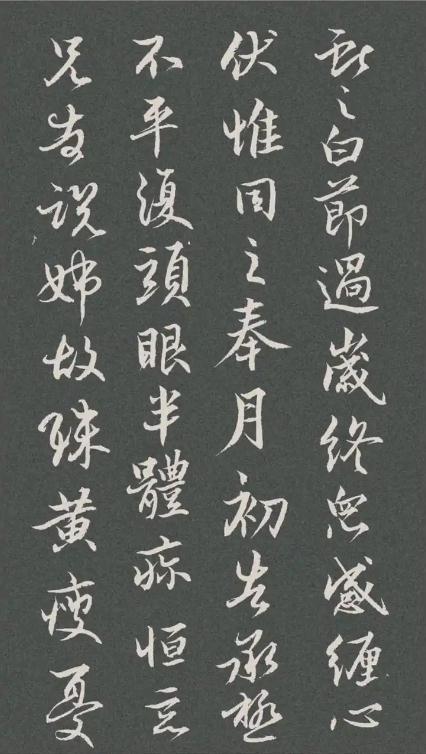 獻之白節過歲終眾感纏心
伏惟同之奉月初告承極
不平復頭眼半體疼恒
兄說姊故殊黃瘦憂